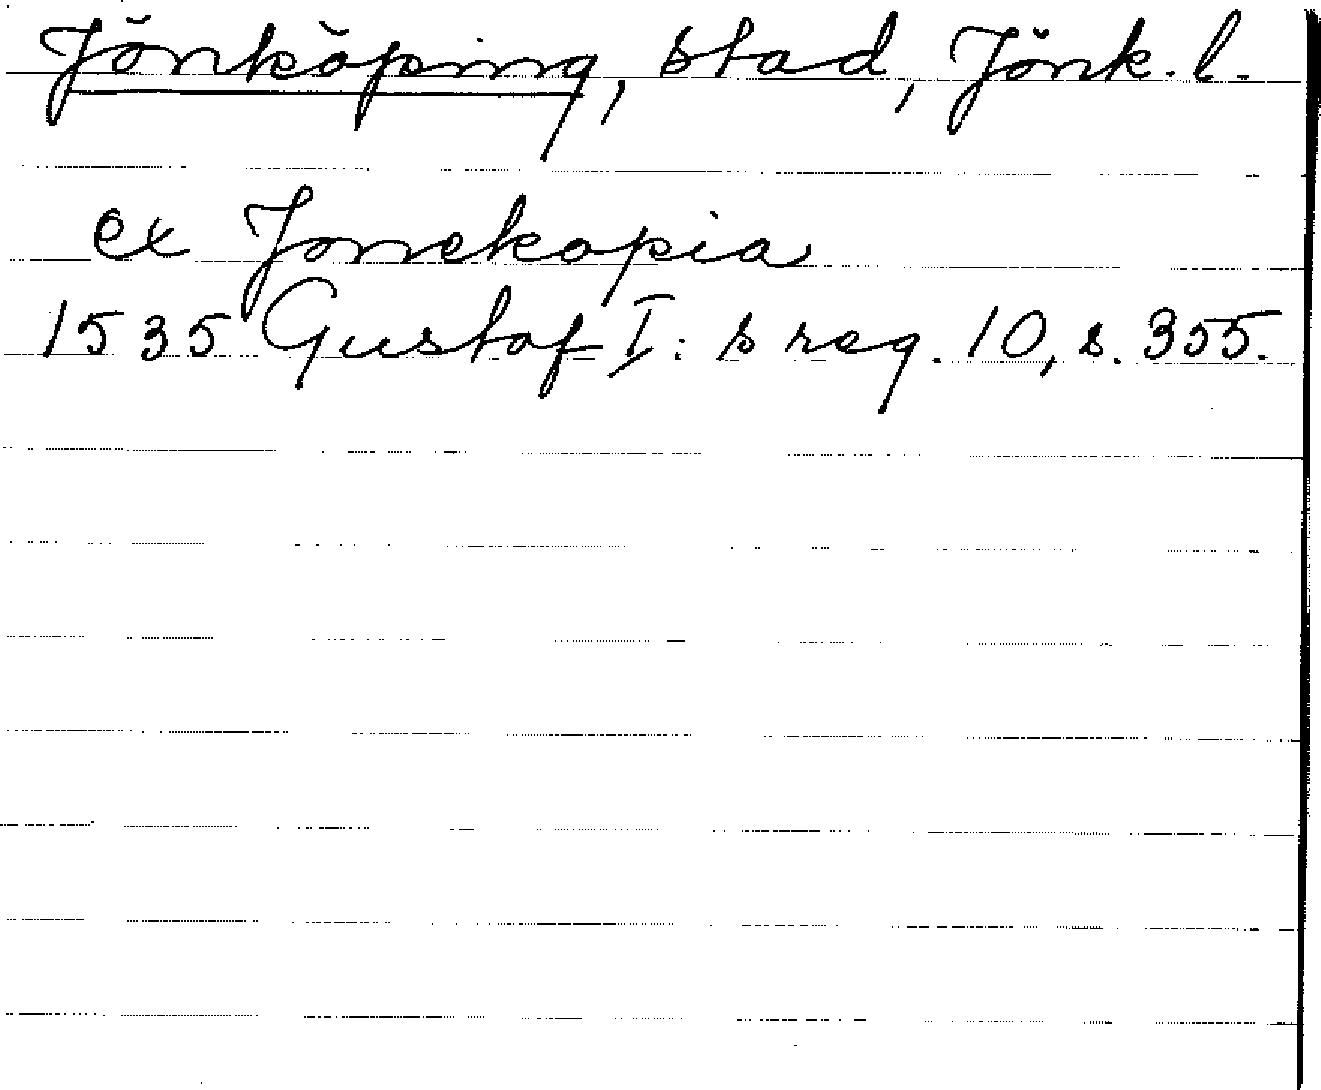 Jönköping, stad, Jönk. l.
ex Jonekopia
1535 Gustaf I:s reg. 10, s. 355.